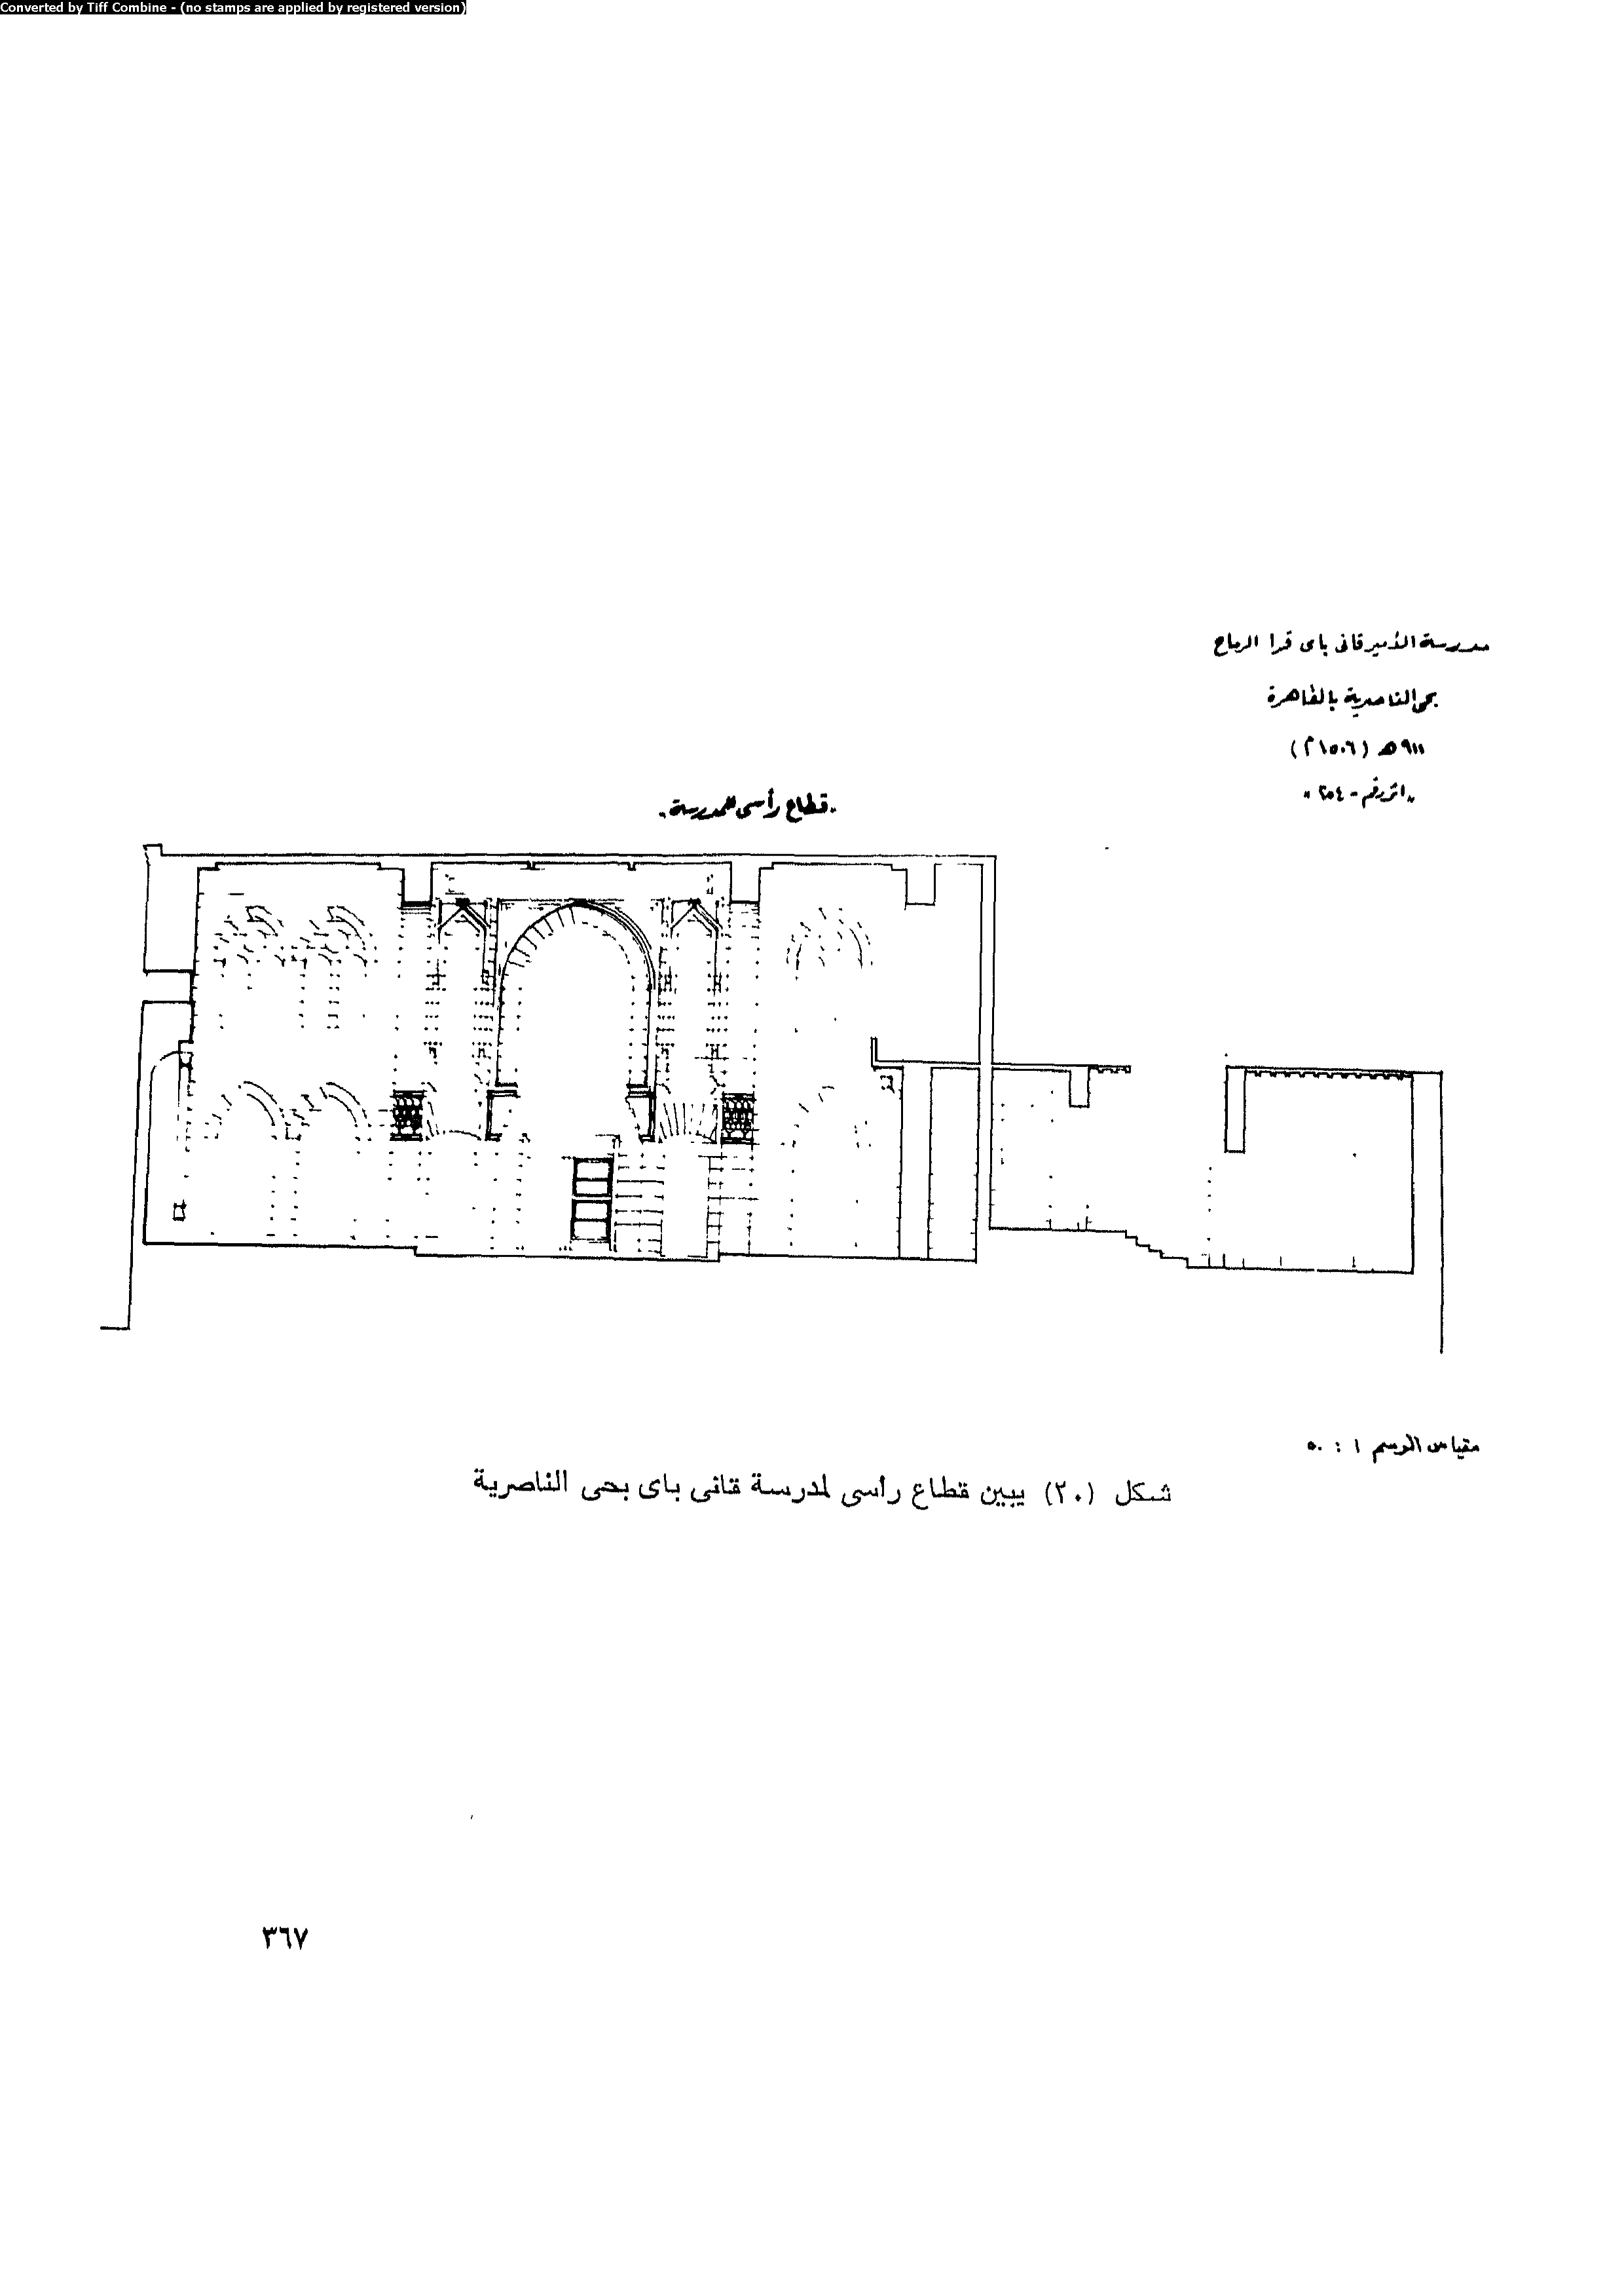 Converted by Tiff Combine - (no stamps are applied by registered version)
مدرسة الأمير قانى باى قرا الرماح
بحى الناصرية بالقاهرة
٩١١ هـ (١٥٠٦ م)
"اثر رقم - ٢٥٤"
قطاع رأسى للمدرسة.
مقياس الرسم ١ : ٥٠
شكل (٢٠) يبين قطاع رأسى لمدرسة قانى باى بحى الناصرية
٣٦٧